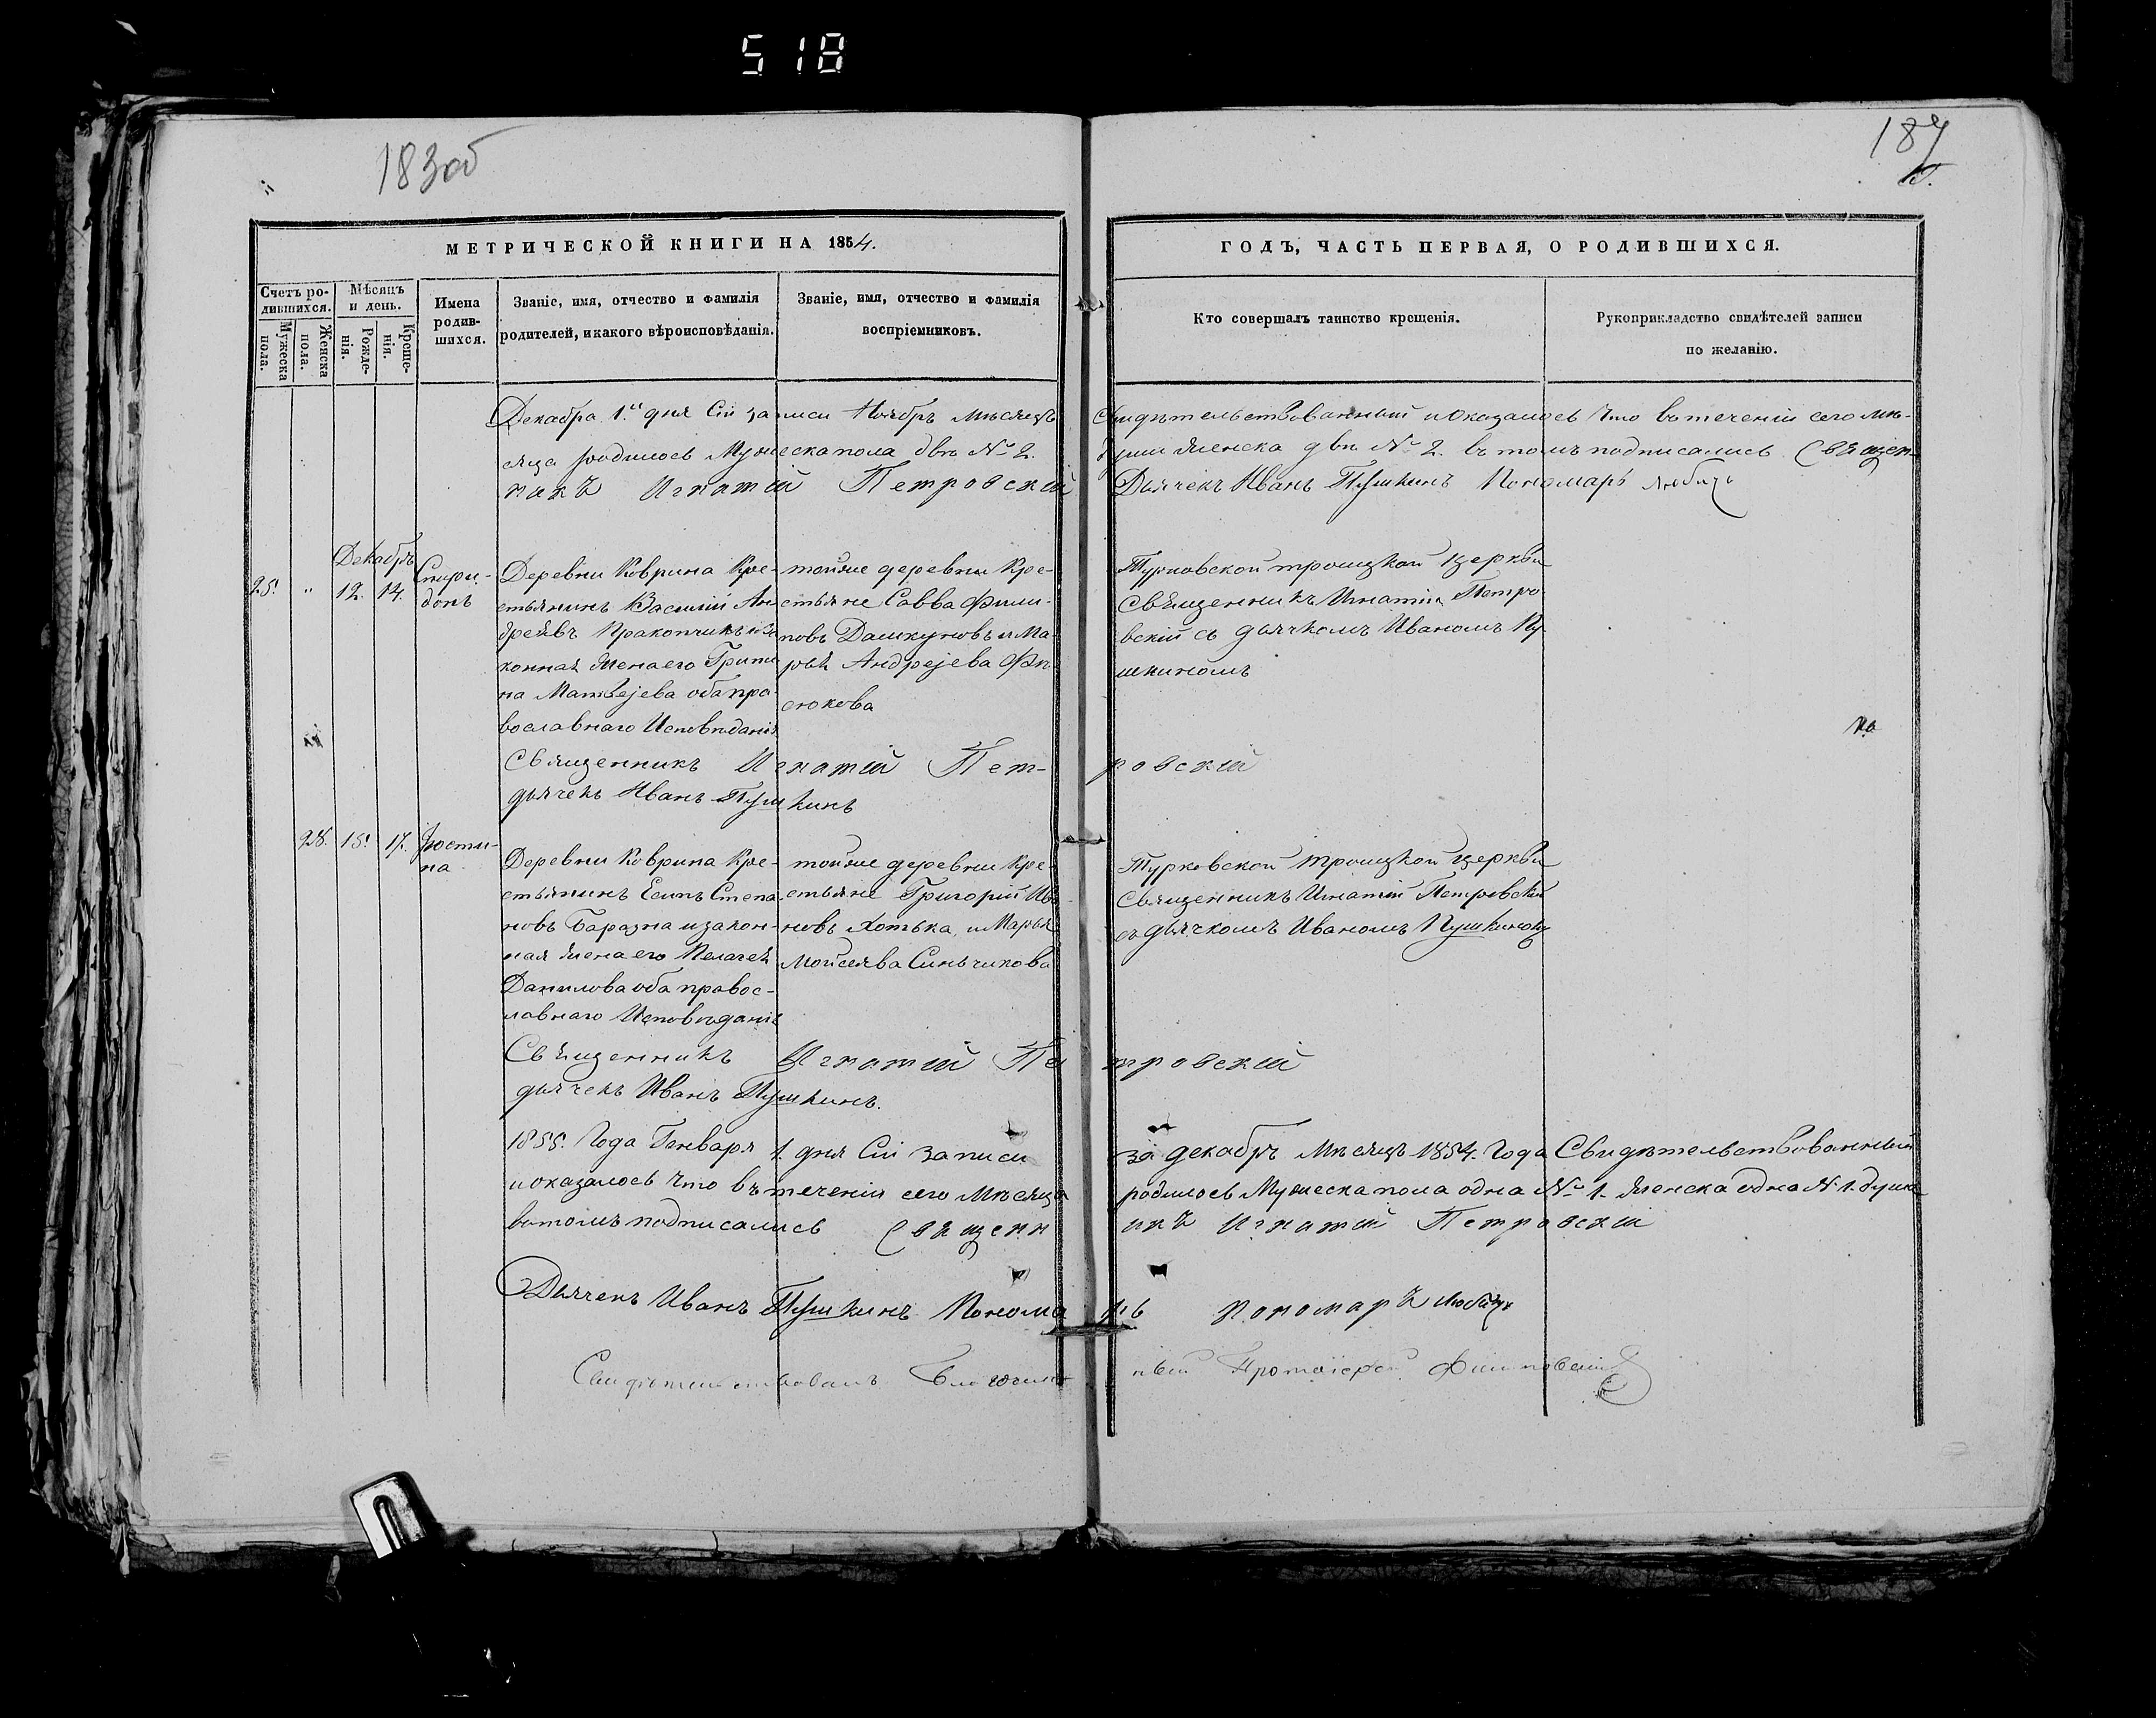 518
183об
187
МЕТРИЧЕСКОЙ КНИГИ НА 1854.
ГОДЪ, ЧАСТЬ ПЕРВАЯ, О РОДИВШИХСЯ.
Счетъ ро-
дившихся.
Мужеска
пола.
Женска
пола.
Мѣсяцъ
и день.
Рожде-
нія.
Креще-
нія.
Имена
родив-
шихся.
Званіе, имя, отчество и фамилія
родителей, и какого вѣроисповѣданія.
Званіе, имя, отчество и фамилія
воспріемниковъ.
Кто совершалъ таинство крещенія.
Рукоприкладство свидѣтелей записи
по желанію.
Декабра 1. дня Сій записи Ноябрь мѣсяцъ
Свидѣтельствованный и оказалось что въ теченіи сего мѣ-
сяца родилось Мужеска пола двѣ № 2.
души женска двѣ № 2. въ томъ подписались Священ-
никъ Игнатій Петровскій
Дьячекъ Иванъ Пушкинъ Пономарь
Декабрь
25. " 12. 14.
Спири-
донъ
Деревни Коврина Кре-
стьянинъ Василій Ан-
дреявъ Пракопчикъ и за
конная жена его
на Матвејева оба пра-
вославнаго Исповѣданія
тойже деревни Кре-
стьяне Савва Фили-
повъ Дашкуновъ и Ма-
рья Андрејева
сюкова
Турковской троицкой церкви
Священникъ Игнатій Петро
вскій съ дьячкомъ Иваномъ Пу-
шкиномъ
Священникъ Игнатій Пет-
ровскій
дьячекъ Иванъ Пушкинъ
28. 15. 17.
Іюсти-
на
Деревни Коврина Кре-
стьянинъ Есипъ Степа-
новъ Баразна и закон-
ная жена его Пелагея
Данилова оба правос-
лавнаго Исповѣданія
тойже деревни Кре-
стьяне Григорій Ива
новъ Хотька и Марья
Мойсеява Синьчикова
Турковской троицкой церкви
Священникъ Игнатій Петровскій
съ дьячкомъ Иваномъ Пушкиномъ
Священникъ Игнатій Пе
тровскій
дьячекъ Иванъ Пушкинъ.
1855. Года Генваря 1. дня Сій записи
за декабрь Мѣсяцъ 1854. Года Свидѣтельствованный
и оказалось что въ теченіи сего Мѣсяца
родилось Мужеска пола одна № 1. женска одна № 1. душа
въ томъ подписались Священн
икъ Игнатій Петровскій
Дьячекъ Иванъ Пушкинъ Понома
рь Пономарь
Свидѣтельствовалъ Благочин
ный Протоіерей